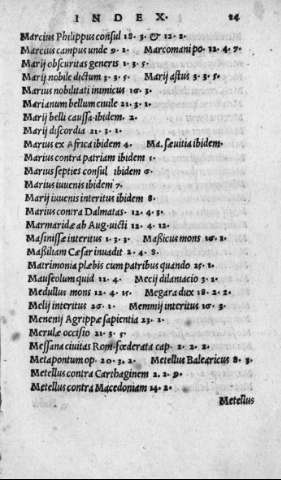 INDEX. 24
Marcius Philippus consul 18. 3. & 12. 2.
Marcius campus unde 9. 1. Marcomani po. 12. 4. 7.
Marij obscuritas generis 1. 3. 5.
Marij nobile dictum 3. 3. 5. Marij astus 3. 3. 5.
Marius nobilitati inimicus 16. 3.
Marianum bellum ciuile 21. 3. 1.
Marij belli caussa ibidem. 2.
Marij discordia 21. 3. 1.
Marius ex Africa ibidem 4. Ma. sæuitia ibidem.
Marius contra patriam ibidem 5.
Marius septies consul ibidem 6.
Marius iuuenis ibidem 7.
Marij iuuenis interitus ibidem 8.
Marius contra Dalmatas. 12. 4. 3.
Marmaridæ ab Aug. uicti 12. 4. 12.
Masinissæ interitus 1. 3. 3. Massicus mons 16. 1.
Massiliam Cæsar inuadit 2. 4. 8.
Matrimonia plæbis cum patribus quando 25. 1.
Mausoleum quid 11. 4. Mecij dilaniatio 3. 1.
Medullus mons 12. 4. 15. Megara dux 18. 2. 2.
Melij interitus 26. 1. Memmij interitus 16. 3.
Menenij Agrippæ sapientia 23. 1.
Merulæ occisio 21. 3. 5.
Messana ciuitas Rom. fœderata cap. 2. 2. 2.
Metapontum op. 20. 3. 2. Metellus Balearicus 8. 3.
Metellus contra Carthaginem 2. 2. 9.
Metellus contra Macedoniam 14. 2.
Metellus